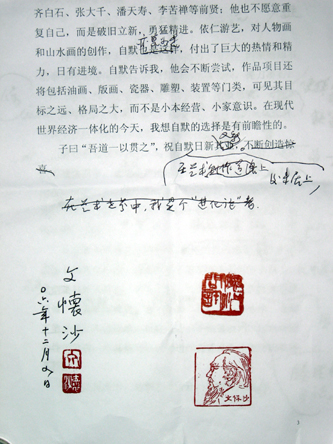 齐白石、张大千、潘天寿、李苦禅等前贤；他也不愿意重
复自己，而是破旧立新，勇猛精进。依仁游艺，对人物画
和山水画的创作，自默
，付出了巨大的热情和精
力，日有进境。自默告诉我，他会不断尝试，作品项目还
将包括油画、版画、瓷器、雕塑、装置等门类，可见其目
标之远、格局之大，而不是小本经营、小家意识。在现代
世界经济一体化的今天，我想自默的选择是有前瞻性的。
子曰“吾道一以贯之”，祝自默日新
，不断创造
在艺术
上
在艺术之节中，我是个“进化论”者。
文懷沙
〇六年十二月八日
文懷沙